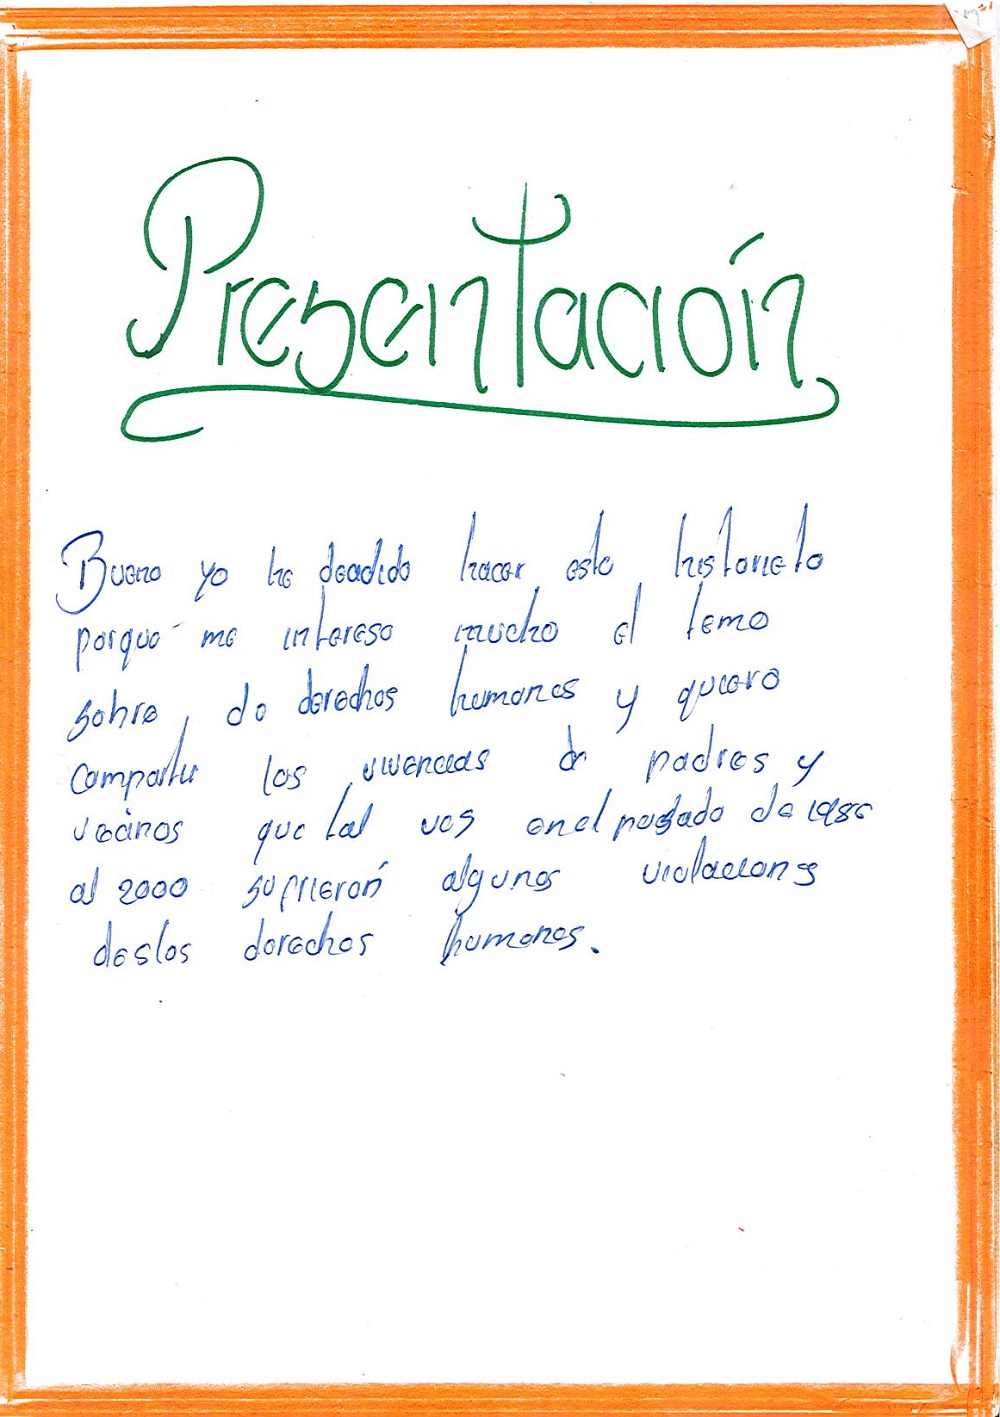 Presentación
Bueno yo he decidido hacer esta historieta
porque me interesa mucho el tema
sobre, do derechos humanos y quiero
compartir las vivencias de padres y
vecinos que tal ves en el pasado de 1980
al 2000 sufrierón algunas violaciones
deslos derechos humanos.